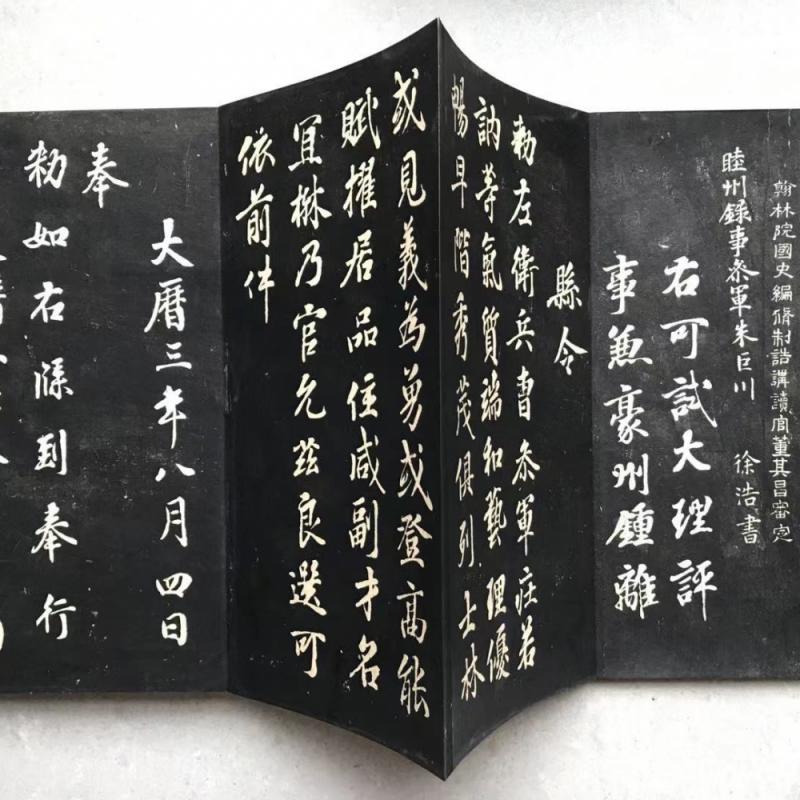 翰林院國史編脩制誥講讀官董其昌審定
睦州録事叅軍朱巨川 徐浩書
右可試大理評
事兼豪州鍾離
縣令
勑左衛兵曹叅軍莊若
訥等氣質端和藝理優
暢早階秀茂俱列士林
或見義為勇或登高能
賦擢居品位咸副才名
宜楙乃官允茲良選可
依前件
大曆三年八月四日
奉
勑如右牒到奉行